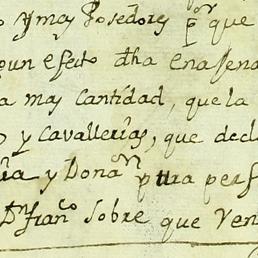 o y mas Posedores pr que
pun efecto dha Enagena
a mas Cantidad, que la
o y Cavallerias, que decl
ia y Donan pura perf
Dn Franco Sobre que Ven